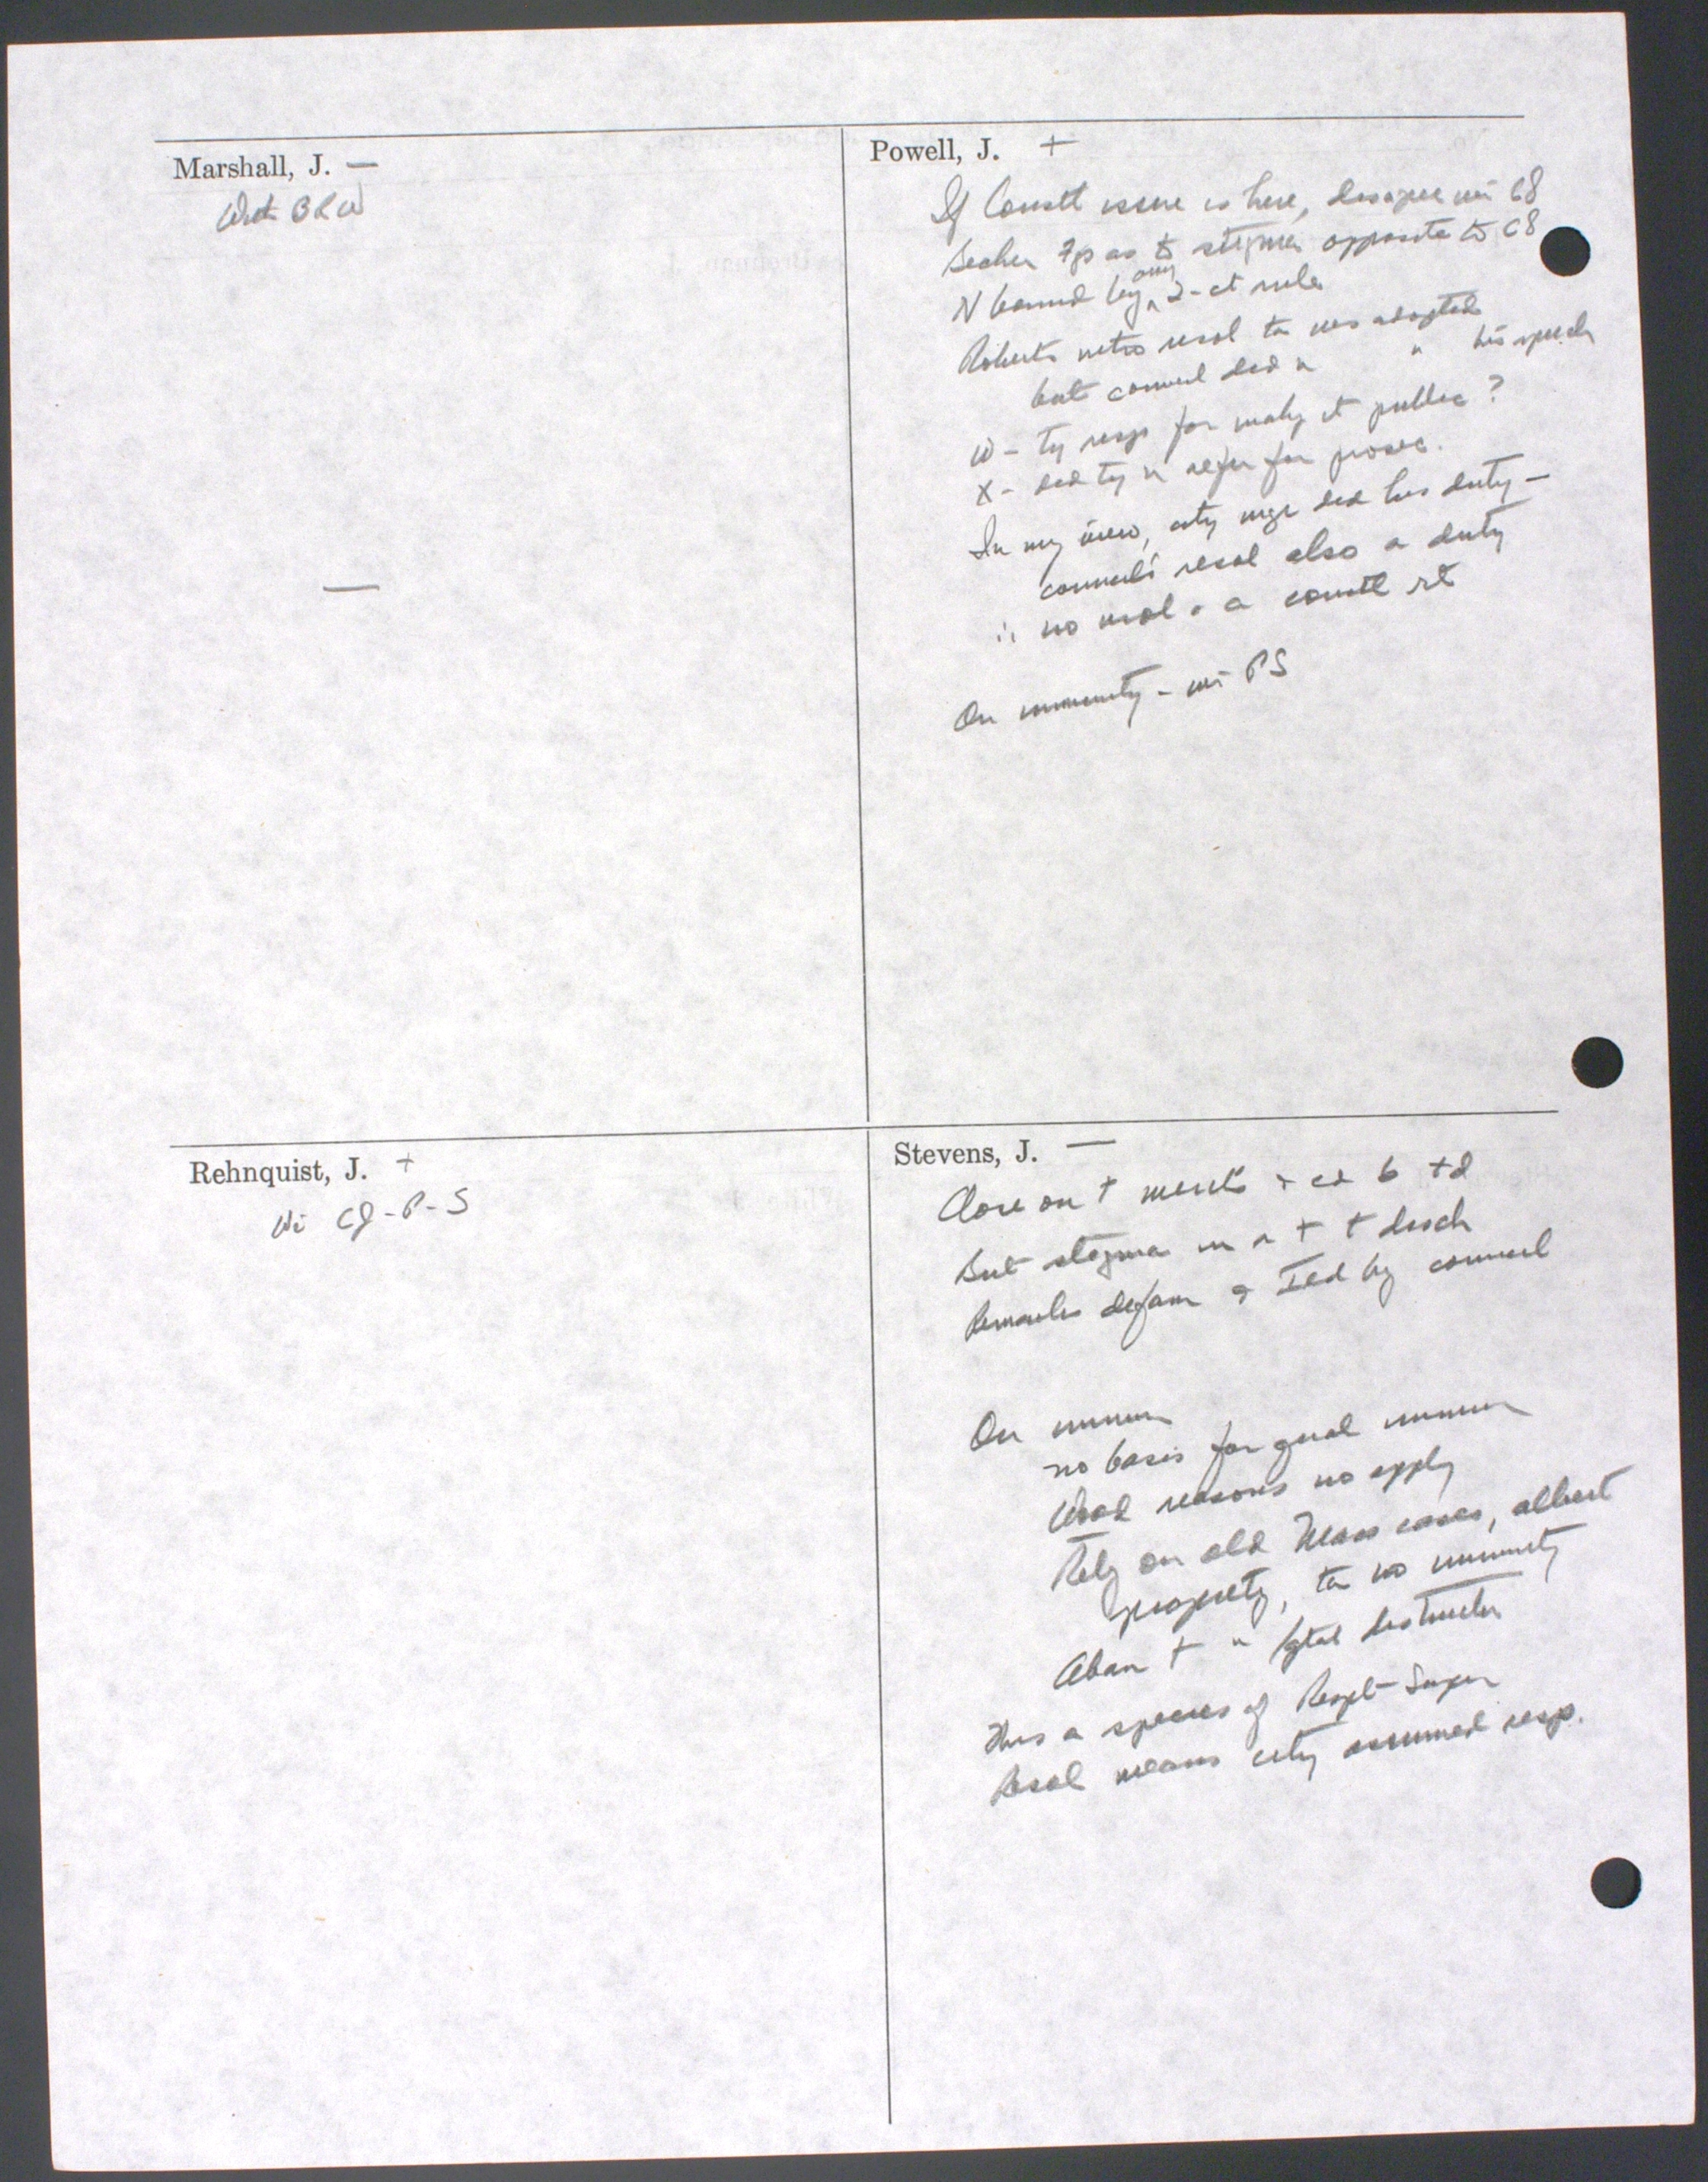 Marshall, J. —
With BRW
—
Powell, J. +
If Constl issue is here, disagree wi C8
Becker 7p as to stigma opposite to C8
N bound by any 2-ct rule
Roberts intro resol tn was adopted
but council did n " his speech
W - ty resp for makg it public?
X - did ty n refer for prosec.
In my view, city mgr did his duty —
council's resol also a duty
∴ no viol o a constl rt
On immunity - wi PS
Rehnquist, J. +
Wi CJ-P-S
Stevens, J. —
Close on t merits + cd b +d
But stigma in n t t disch
Remarks defam & Ied by council
On immun
no basis for qual immun
Wood reasons no apply
Rely on old Mass cases, albeit
property, tn no immunity
Aban t " /gtal distinction
This a species of Respt Super
Resol means city assumed resp.